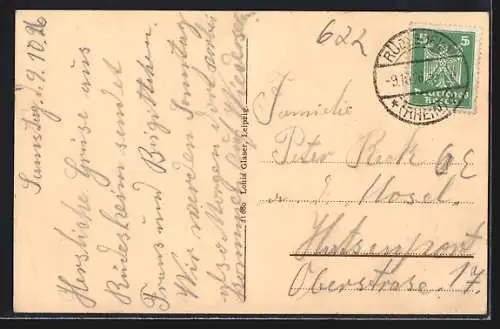 Samstag, d. 9.10.26
Herzliche Grüsse aus
Rüdesheim sendet
Franz und
Wir werden Sonntag
also Morgen
41660 Louis Glaser, Leipzig.
622
RÜDESH
* (RHEIN)
5 5
Deutsches
Reich
Familie
Peter Reck
Mosel
Hatzenport
Oberstrasse 17.